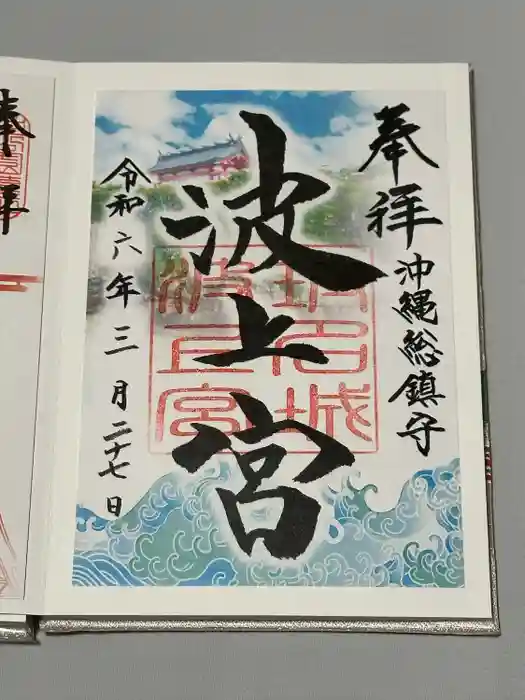 奉拝
沖縄総鎮守
波上宮
令和六年三月二十七日
奉拝